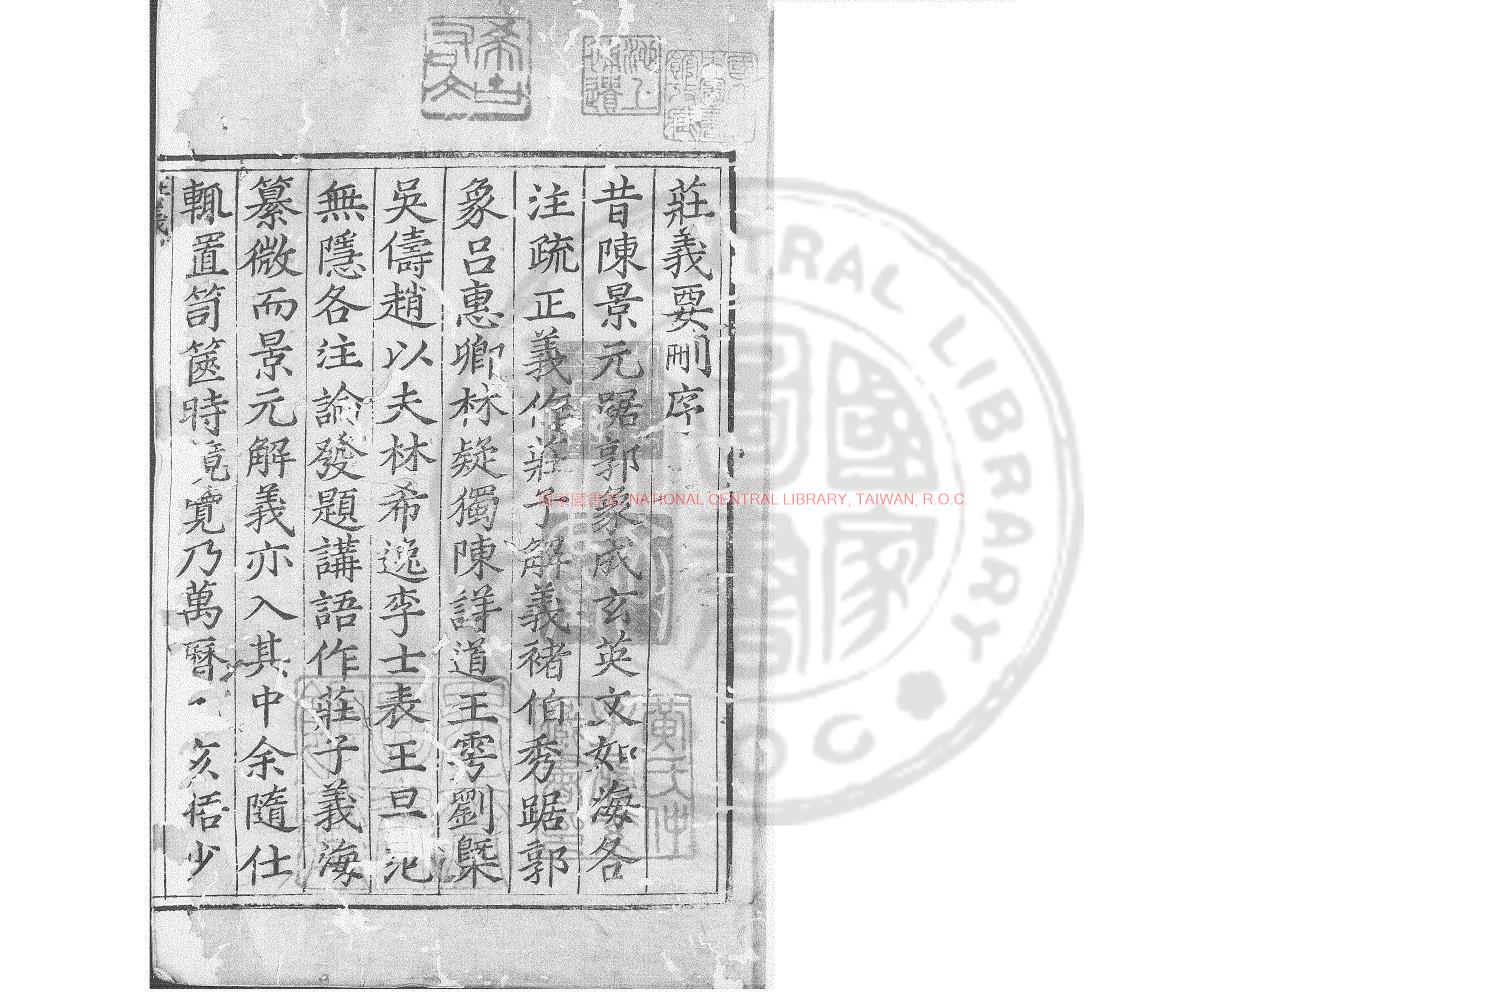 莊義要刪序
昔陳景元踞郭象成玄英文如海各
注疏正義作莊子解義褚伯秀踞郭
象呂惠卿林疑獨陳詳道王雱劉槩
吳儔趙以夫林希逸李士表王旦范
無隱各注論發題講語作莊子義海
纂微而景元解義亦入其中余隨仕
輒置笥篋時竟寬乃萬曆亥括少
國家圖書館 NATIONAL CENTRAL LIBRARY, TAIWAN, R.O.C.
CENTRAL LIBRARY
國家圖書